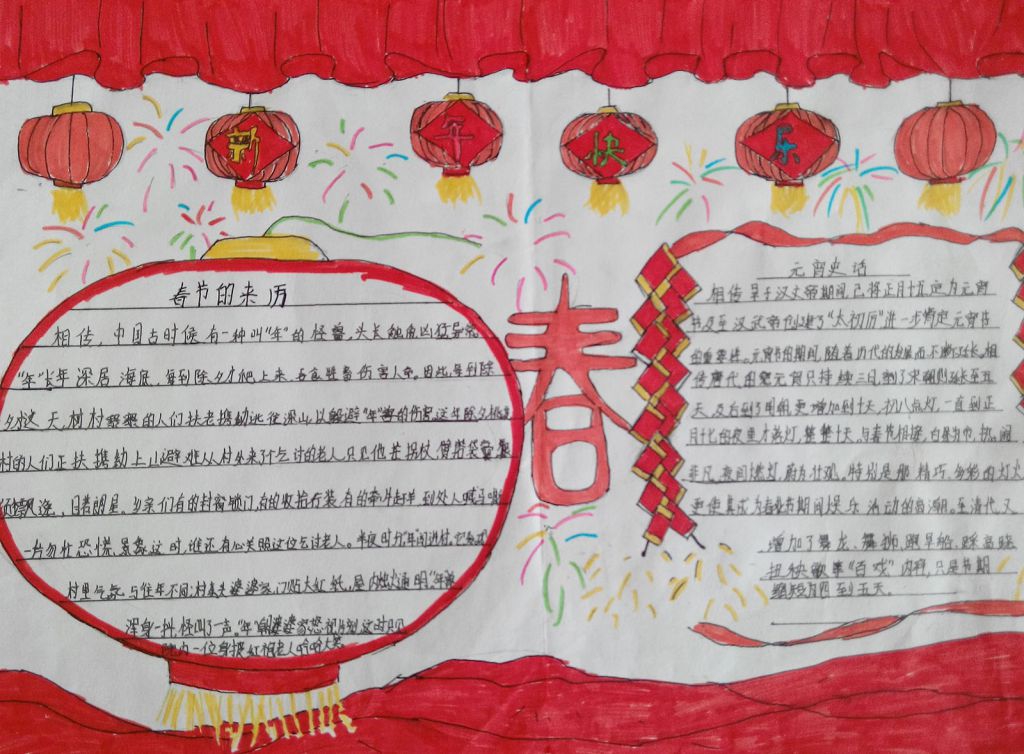 新年快乐
春节的来历
相传，中国古时候有一种叫“年”的怪兽，头长触角凶猛异常
“年”长年深居海底，每到除夕才爬上来，吞食牲畜伤害人命。因此，每到除
夕这天，村村寨寨的人们扶老携幼逃往深山，以躲避“年”兽的伤害这年除夕桃花
村的人们正扶携幼上山避难从村外来了个乞讨的老人只见他手拄拐杖，臂搭袋囊银
须飘逸，目若朗星，乡亲们有的封窗锁门，有的收拾行装，有的牵牛赶羊到处人喊马嘶
一台匆忙恐慌景象这时，谁还有心关照这位乞讨老人。半夜时分“年”闯进村。它发现
村里气氛与往年不同：村东头婆婆家，门贴大红纸，屋内烛火通明，“年”兽
浑身一抖，怪叫了一声。“年”朝婆婆家怒视片刻这时只见
院内一位身披红袍老人哈哈大笑
春
元宵史话
相传早于汉文帝期间，已将正月十五定为元宵
节及至汉武帝创建了“太初历”进一步肯定元宵节
的重要性。元宵节的期间，随着历代的发展而不断延长，相
传唐代的元宵只持续三日，到了宋朝则延长至五
天，及后到了明朝更增加到十天，初八点灯，一直到正
月十七的夜里才落灯，整整十天，与春节相接，白昼为市，热闹
非凡，夜间燃灯，蔚为壮观，特别是那精巧，多彩的灯火
更使其成为春节期间娱乐活动的高潮。至清代，又
增加了舞龙、舞狮跑旱船，踩高跷
扭秧歌等“百戏”内容，只是节期
缩短为四到五天。